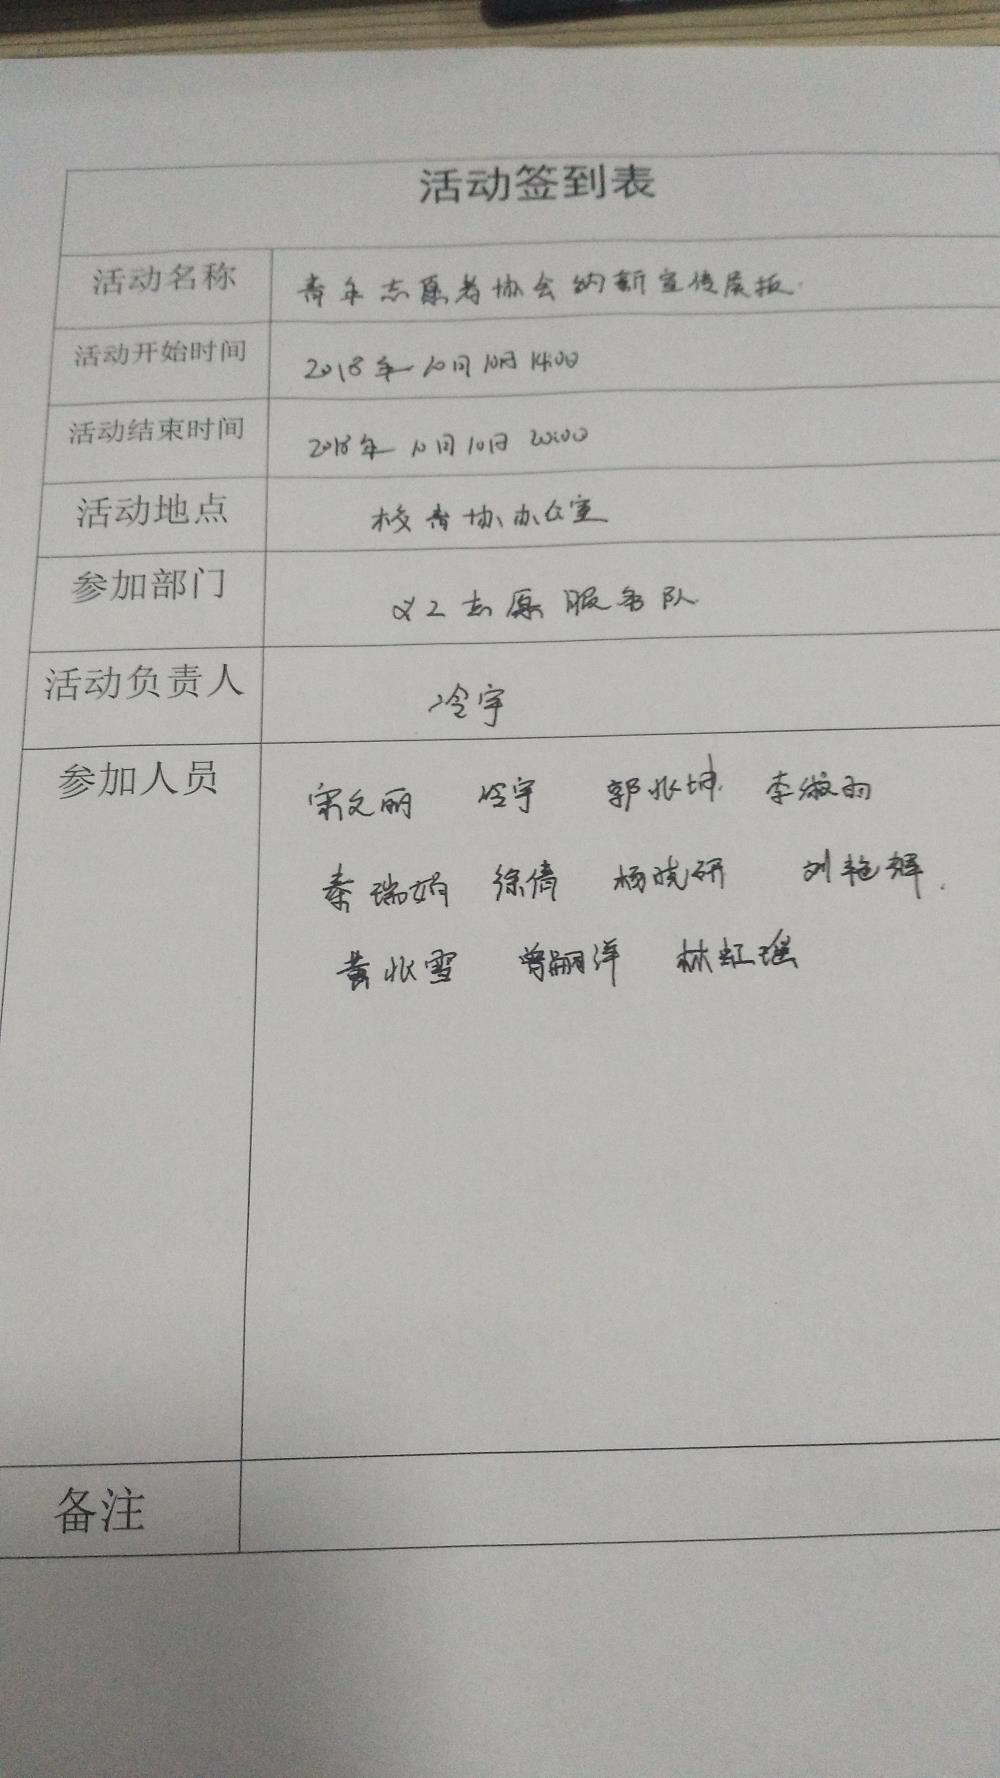 活动签到表
活动名称 青年志愿者协会纳新宣传展板
活动开始时间 2018年10月10日 14:00
活动结束时间 2018年10月10日 20:00
活动地点 校青协办公室
参加部门 义工志愿服务队
活动负责人 冷宇
参加人员 宋文丽 冷宇 郭兆坤 李淑雨
秦瑞娟 徐倩 杨晓研 刘艳辉
黄兆雪 曾嗣洋 林虹瑶
备注